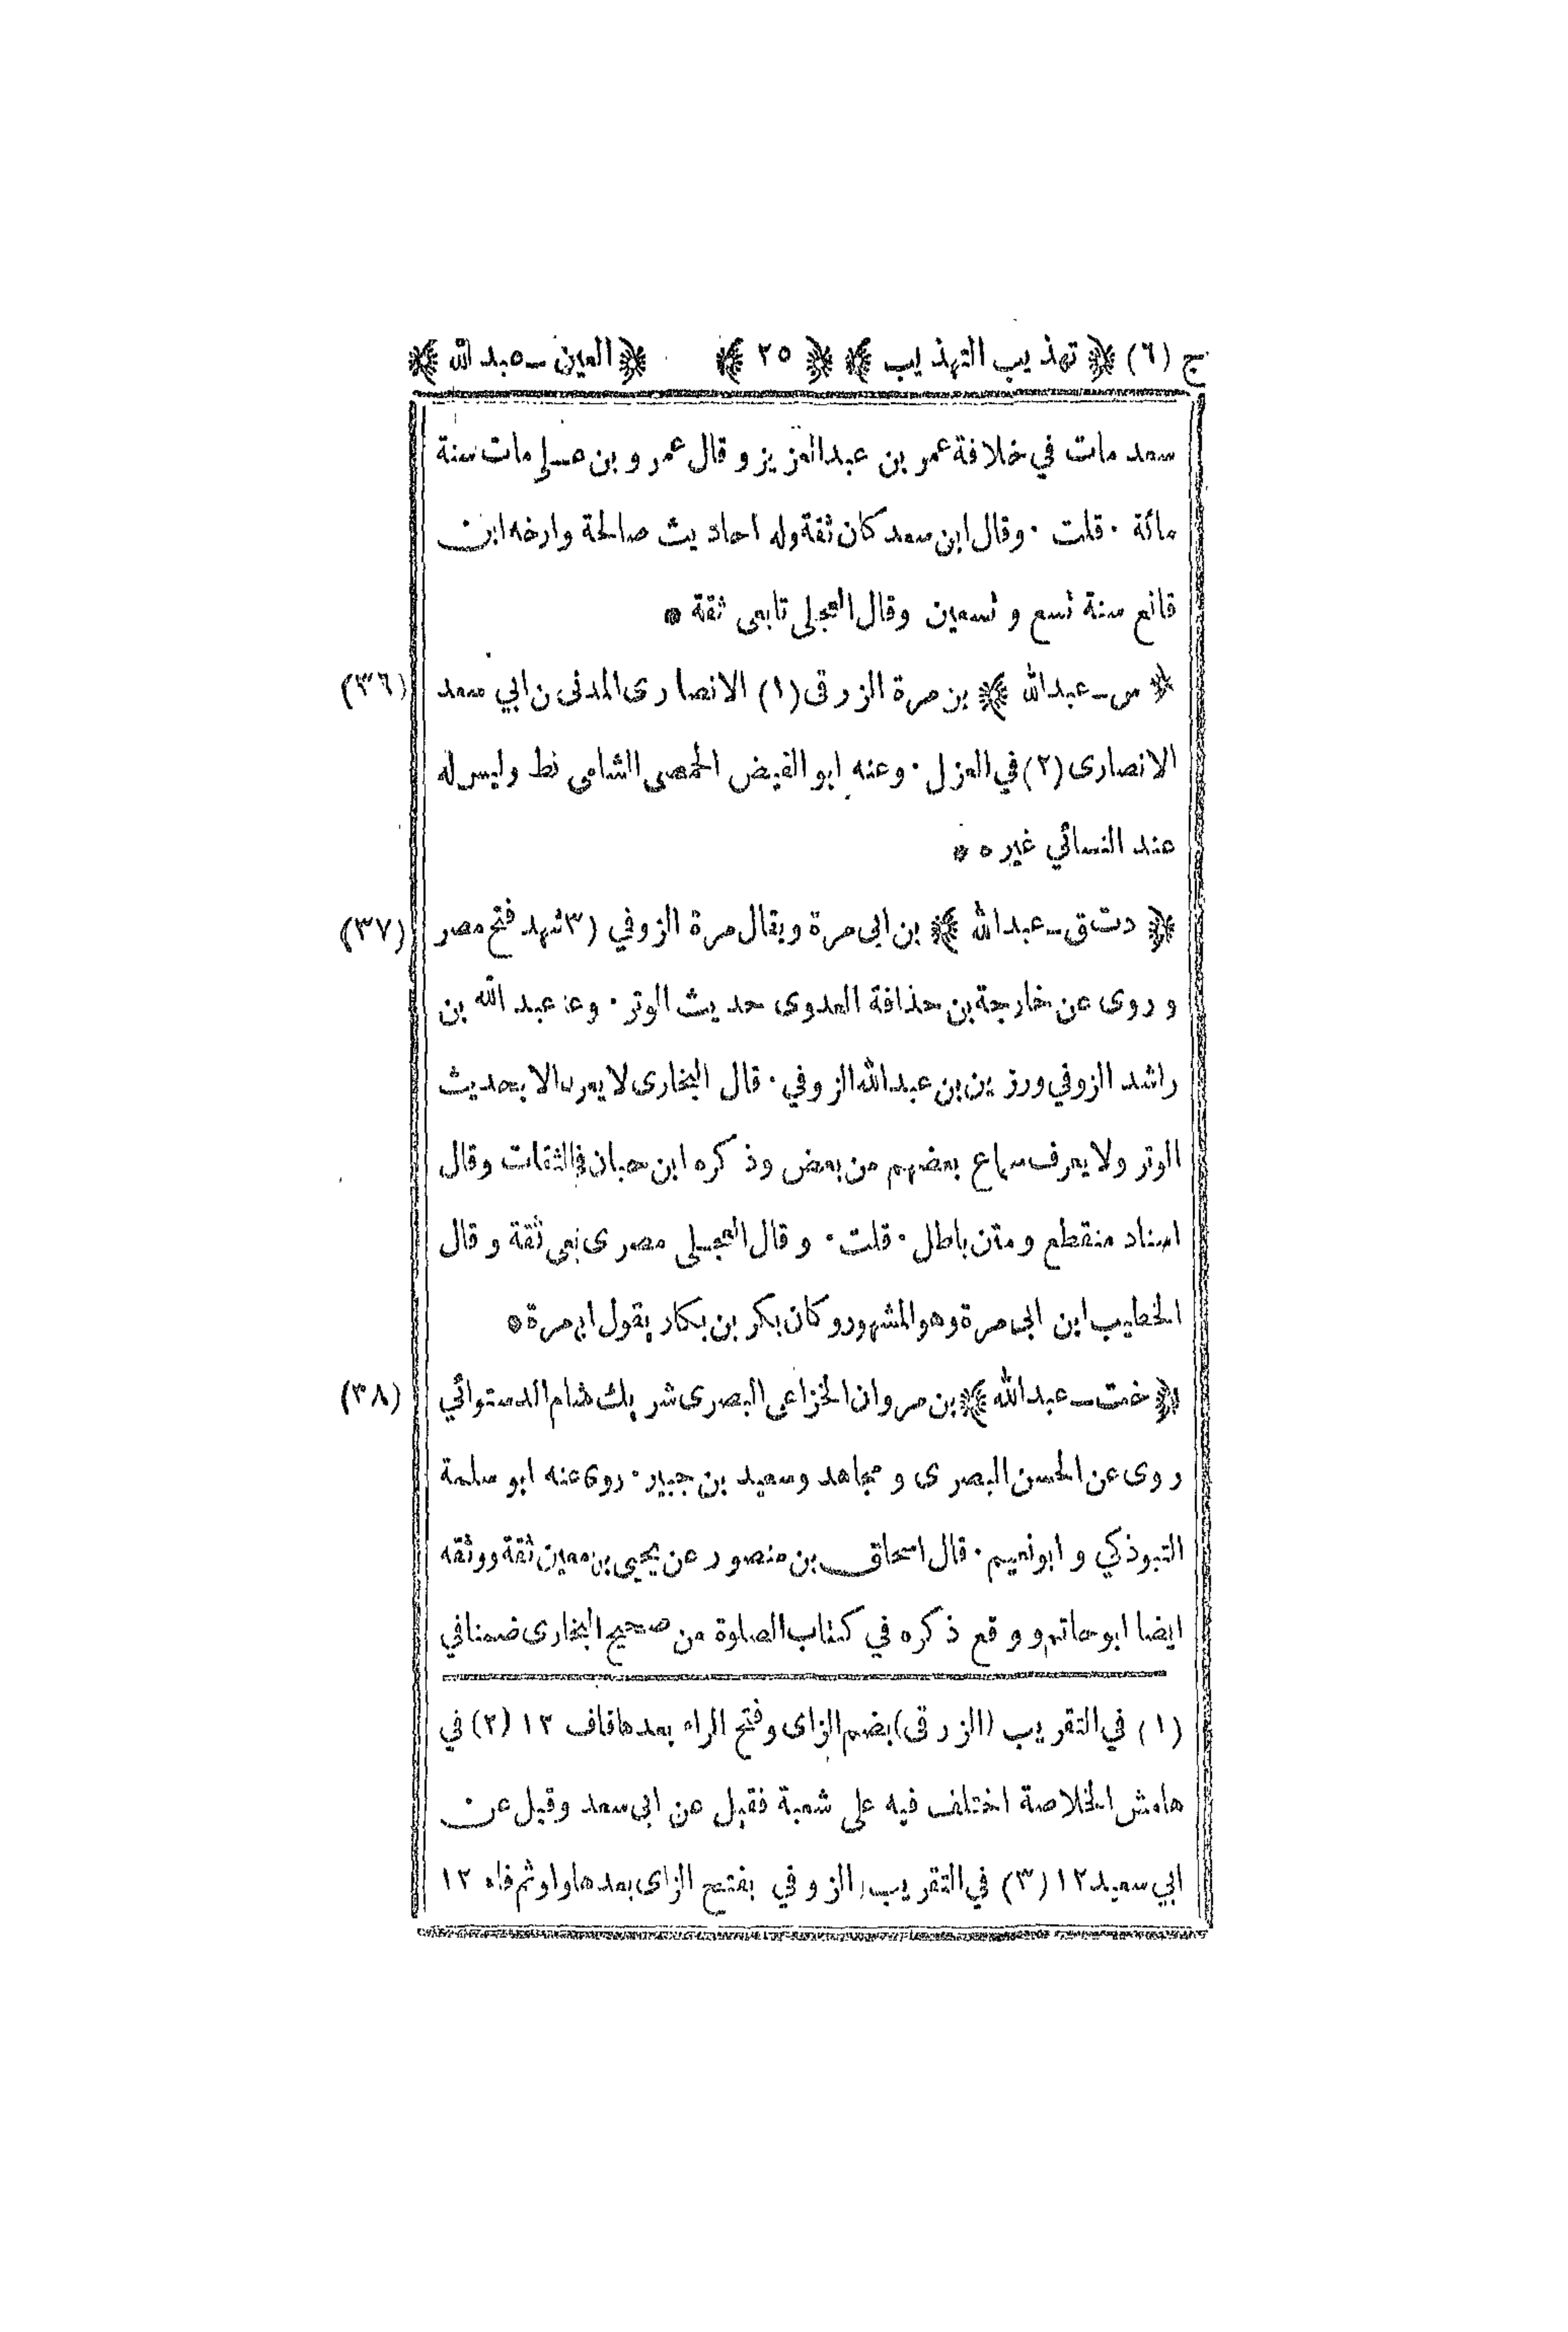 ج (٦) ﴿ تهذيب التهذيب ﴾ ﴿ ٢٥ ﴾ ﴿ العين - عبد الله ﴾
سعد مات في خلافة عمر بن عبدالعزيز وقال عمرو بن علي مات سنة
مائة · قلت · وقال ابن سعد كان ثقة وله احاديث صالحة وارخه ابن
قانع سنة تسع و تسعين وقال العجلى تابعى ثقة *
﴿ س - عبدالله ﴾ بن مرة الزرقى (١) الانصارى المدنى ن ابي سعد (٣٦)
الانصارى (٢) في العزل · وعنه ابو الفيض الحمصى الشامى فط وليس له
عند النسائي غيره *
﴿ دت ق - عبدالله ﴾ بن ابى مرة ويقال مرة الزوفي (٣ شهد فتح مصر (٣٧)
و روى عن خارجة بن حذافة العدوى حديث الوتر · وعنه عبد الله بن
راشد الزوفي ورزين بن عبدالله الزوفي · قال البخارى لا يعرف الا بحديث
الوتر ولا يعرف سماع بعضهم من بعض وذكره ابن حبان في الثقات وقال
اسناد منقطع ومتن باطل · قلت · وقال العجلى مصرى تابعى ثقة وقال
الخطيب ابن ابى مرة وهو المشهور وكان بكر بن بكار يقول ابن مرة *
﴿ خت - عبدالله ﴾ بن مروان الخزاعى البصرى شريك هشام الدستوائي (٣٨)
روى عن الحسن البصرى و مجاهد وسعيد بن جبير · روى عنه ابو سلمة
التبوذكي و ابو نعيم · قال اسحاق بن منصور عن يحيى بن معين ثقة ووثقه
ايضا ابو حاتم و وقع ذكره في كتاب الصلوة من صحيح البخارى ضمنا في
(١) في التقريب (الزرقى) بضم الزاى وفتح الراء بعدها قاف ١٢ (٢) في
هامش الخلاصة اختلف فيه على شعبة فقيل عن ابى سعد وقيل عن
ابي سعيد ١٢ (٣) في التقريب الزوفي بفتح الزاى بعدها واو ثم فاء ١٢